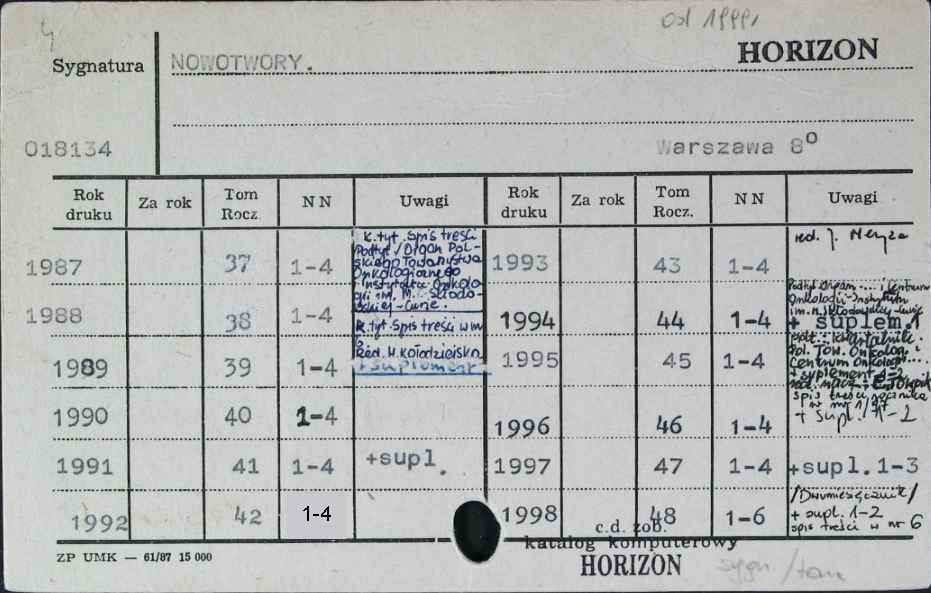 od 1999,
HORIZON
Sygnatura NOWOTWORY.
018134 Warszawa 8°
Rok druku Za rok Tom Rocz. NN Uwagi Rok druku Za rok Tom Rocz. NN Uwagi
1987 37 1-4 K. tyt. Spis treści
Podtyt / Organ Pol-
skiego Towarzystwa
Onkologicznego
i Instytutu Onkolo-
gii im. M. Skłodo-
wskiej-Curie.
1993 43 1-4 red. J. Meyza
1988 38 1-4 K. tyt. Spis treści w nr
1994 44 1-4 Podtyt. Organ .... i Centrum
Onkologii-Instytutu
im. M. Skłodowskiej-Curie
+ suplem. 1
1989 39 1-4 Red. H. Kołodziejska
+ suplement
1995 45 1-4 kwartalnik
Pol. Tow. Onkolog. i
Centrum Onkologii...
suplement 1-2
1990 40 1-4
1996 46 1-4 spis treści rocznika
w nr 1/97
+ supl. 1-2
1991 41 1-4 +supl.
1997 47 1-4 +supl. 1-3
1992 42 1-4
1998 48 1-6 /Dwumiesięcznik/
+ supl. 1-2
spis treści w nr 6
c.d. zob.
katalog komputerowy
ZP UMK — 61/87 15 000
HORIZON sygn /tom